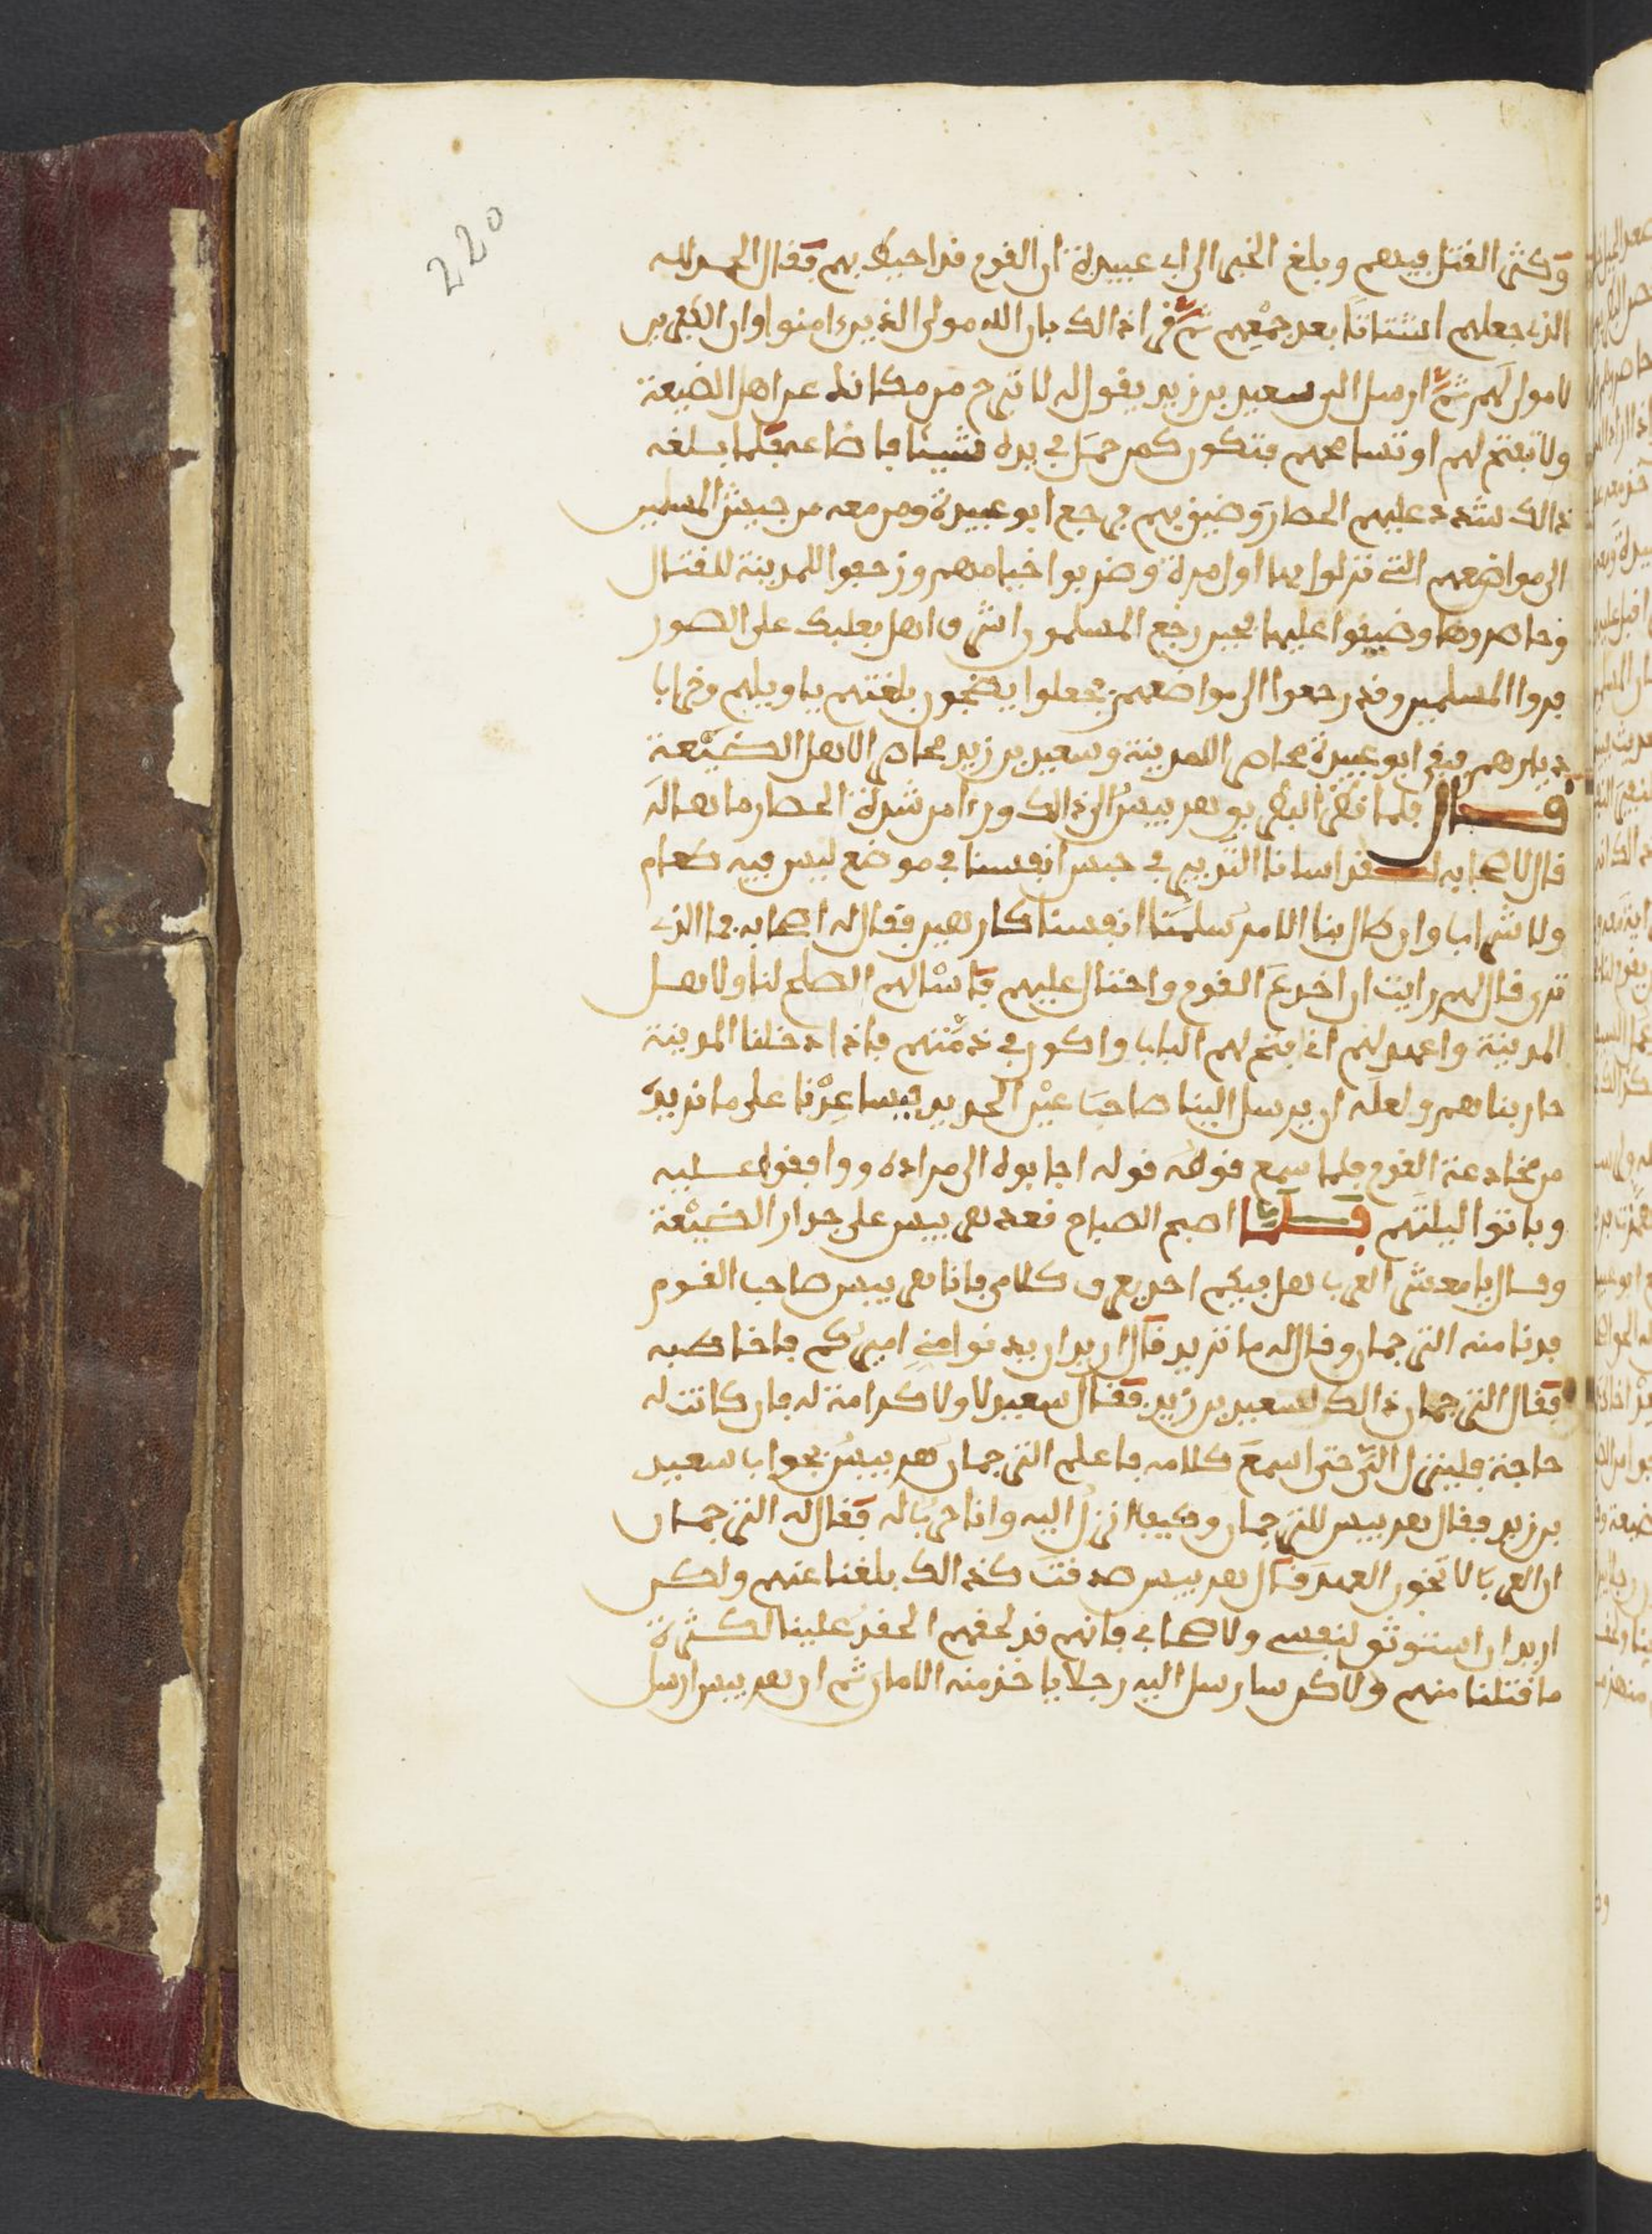 220
وكثر القتل فيهم وبلغ الخبر الى ابى عبيدة ان القوم قد احيط بهم فقال الحمد لله
الذى جعلهم اشتاتا بعد جمعهم ثم قرا ذالك بان الله مولى الذين ءامنوا وان الكفرين
لا مولى لهم ثم ارسل الى سعيد بن زيد يقول له لا تبرح من مكانك عن اهل الضيعة
ولا تفتح لهم او تسامحهم فتكون كمن حصل فى يده شيئا فاضاعه فلما بلغه
ذالك شدد عليهم الحصار وضيق بهم فرجع ابو عبيدة ومن معه من جيش المسلمين
الى مواضعهم التى نزلوا بها اول مرة وضربوا خيامهم وزحفوا للمدينة للقتال
وحاصروها وضيقوا عليها فحين رجع المسلمون اشرف اهل بعلبك على الصور
فروا المسلمين وقد رجعوا الى مواضعهم فجعلوا يضجون بلغتهم ياويلهم وخراب
ديارهم فبقى ابو عبيدة محاصر اللمدينة وسعيد بن زيد محاصر الاهل الضيعة
قال فلما نظر البطريق هربيس الى ذالك وراء من شدة الحصار ما هاله
قال لاصحابه لقد اسانا التدبير فى حبس انفسنا فى موضع ليس فيه طعام
ولا شراب وان طال بنا الامر سلمنا انفسنا كارهين فقال له اصحابه فما الذى
ترى قال لهم رايت ان اخدع القوم واحتال عليهم فاسالهم الصلح لنا ولاهل
المدينة واعهد لهم انى افتح لهم الباب واكون فى ذمتهم فاذا دخلنا المدينة
حاربناهم ولعله ان يرسل الينا صاحب عين الحديد فيساعدنا على ما نريده
من مخادعة القوم فلما سمع قومه قوله اجابوه الى مراده ووافقوا عليه
وباتوا ليلتهم فلما اصبح الصباح قعد هربيس على جدار الضيعة
وقال يا معشر العرب هل فيكم احد يعرف كلامى فانا هربيس صاحب القوم
فدنا منه الترجمان وقال له ما تريد قال اريد ان يدنوا منى اميركم فاخاطبه
فقال الترجمان ذالك لسعيد بن زيد فقال سعيد لا ولا كرامة له فان كانت له
حاجة فلينزل الى حتى اسمع كلامه فاعلم الترجمان هربيس بجواب سعيد
بن زيد فقال هربيس للترجمان وكيف انزل اليه وانا حرب له فقال له الترجمان
ان العرب لا تخون العهد قال هربيس صدقت كذالك بلغنا عنهم ولكن
اريد ان استوثق لنفسى ولاصحابى فانهم قد لحقهم الحقد علينا لكثرة
ما قتلنا منهم ولاكن سارسل اليه رجلا ياخذ منه الامان ثم ان هربيس ارسل